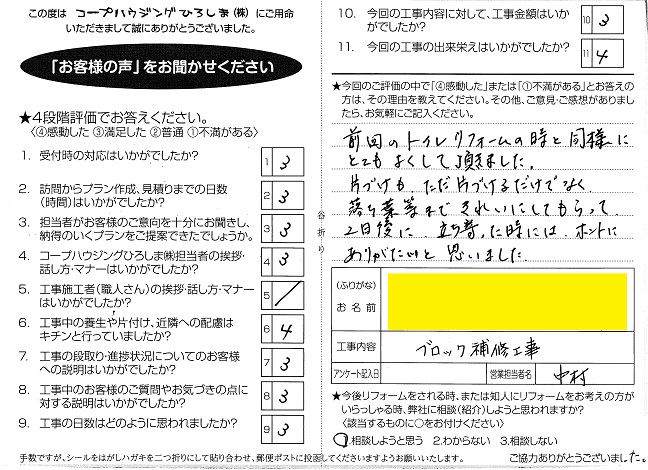 この度は コープハウジングひろしま(株) にご用命
いただきまして誠にありがとうございました。
「お客様の声」をお聞かせください
★4段階評価でお答えください。
〈④感動した ③満足した ②普通 ①不満がある〉
1. 受付時の対応はいかがでしたか?
1 3
2. 訪問からプラン作成、見積りまでの日数
(時間)はいかがでしたか?
2 3
3. 担当者がお客様のご意向を十分にお聞きし、
納得のいくプランをご提案できたでしょうか。
3 3
4. コープハウジングひろしま㈱担当者の挨拶・
話し方・マナーはいかがでしたか?
4 3
5. 工事施工者(職人さん)の挨拶・話し方・マナー
はいかがでしたか?
5 /
6. 工事中の養生や片付け、近隣への配慮は
キチンと行っていましたか?
6 4
7. 工事の段取り・進捗状況についてのお客様
への説明はいかがでしたか?
7 3
8. 工事中のお客様のご質問やお気づきの点に
対する説明はいかがでしたか?
8 3
9. 工事の日数はどのように思われましたか?
9 3
谷折り
10. 今回の工事内容に対して、工事金額はいか
がでしたか?
10 3
11. 今回の工事の出来栄えはいかがでしたか?
11 4
★今回のご評価の中で「④感動した」または「①不満がある」とお答えの
方は、その理由を教えてください。その他、ご意見・ご感想がありまし
たら、お気軽にご記入ください。
前回のトイレリフォームの時と同様に
とてもよくして頂きました。
片づけも、ただ片づけるだけでなく、
落ち葉等まできれいにしてもらって、
2日後に 立ち寄った時には、ホントに
ありがたいと思いました。
(ふりがな)
お名前
工事内容 ブロック補修工事
アンケート記入日
営業担当者名 中村
★今後リフォームをされる時、または知人にリフォームをお考えの方が
いらっしゃる時、弊社に相談(紹介)しようと思われますか?
〈該当するものに○をお付けください〉
①相談しようと思う 2.わからない 3.相談しない
手数ですが、シールをはがしハガキを二つ折りにして貼り合わせ、郵便ポストに投函してくださいますようお願いいたします。
ご協力ありがとうございました。